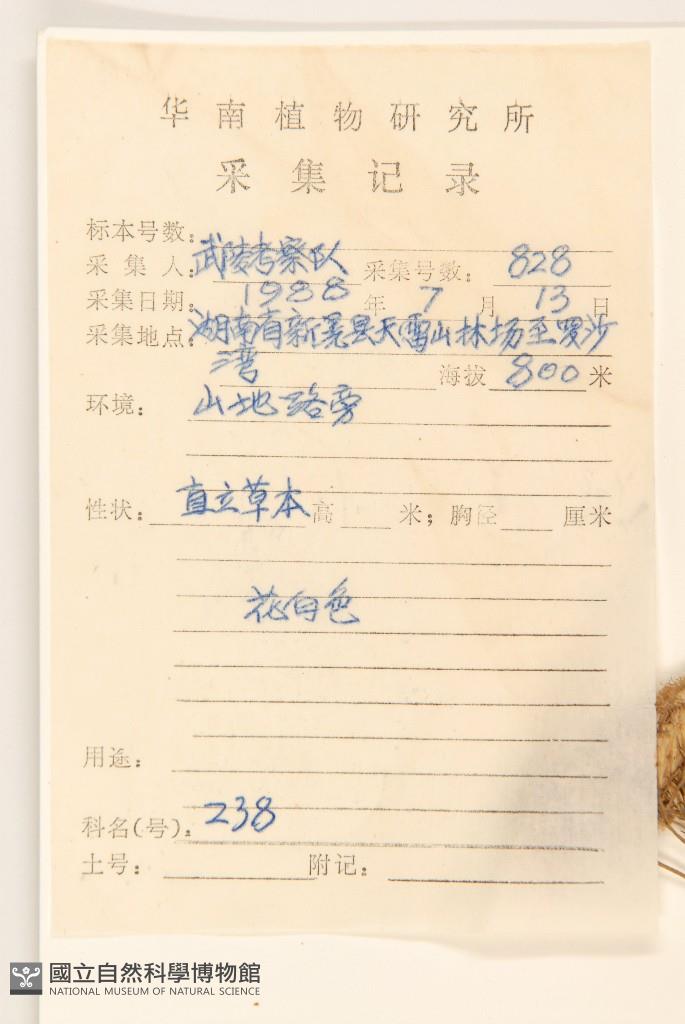 华南植物研究所
采集记录
标本号数:
采集人: 武陵考察队 采集号数: 828
采集日期: 1988 年 7 月 13 日
采集地点: 湖南省新晃县天雷山林场至罗沙
湾 海拔 800 米
环境: 山地路旁
性状: 直立草本 高 米; 胸径 厘米
花白色
用途:
科名(号): 238
土号: 附记:
國立自然科學博物館
NATIONAL MUSEUM OF NATURAL SCIENCE